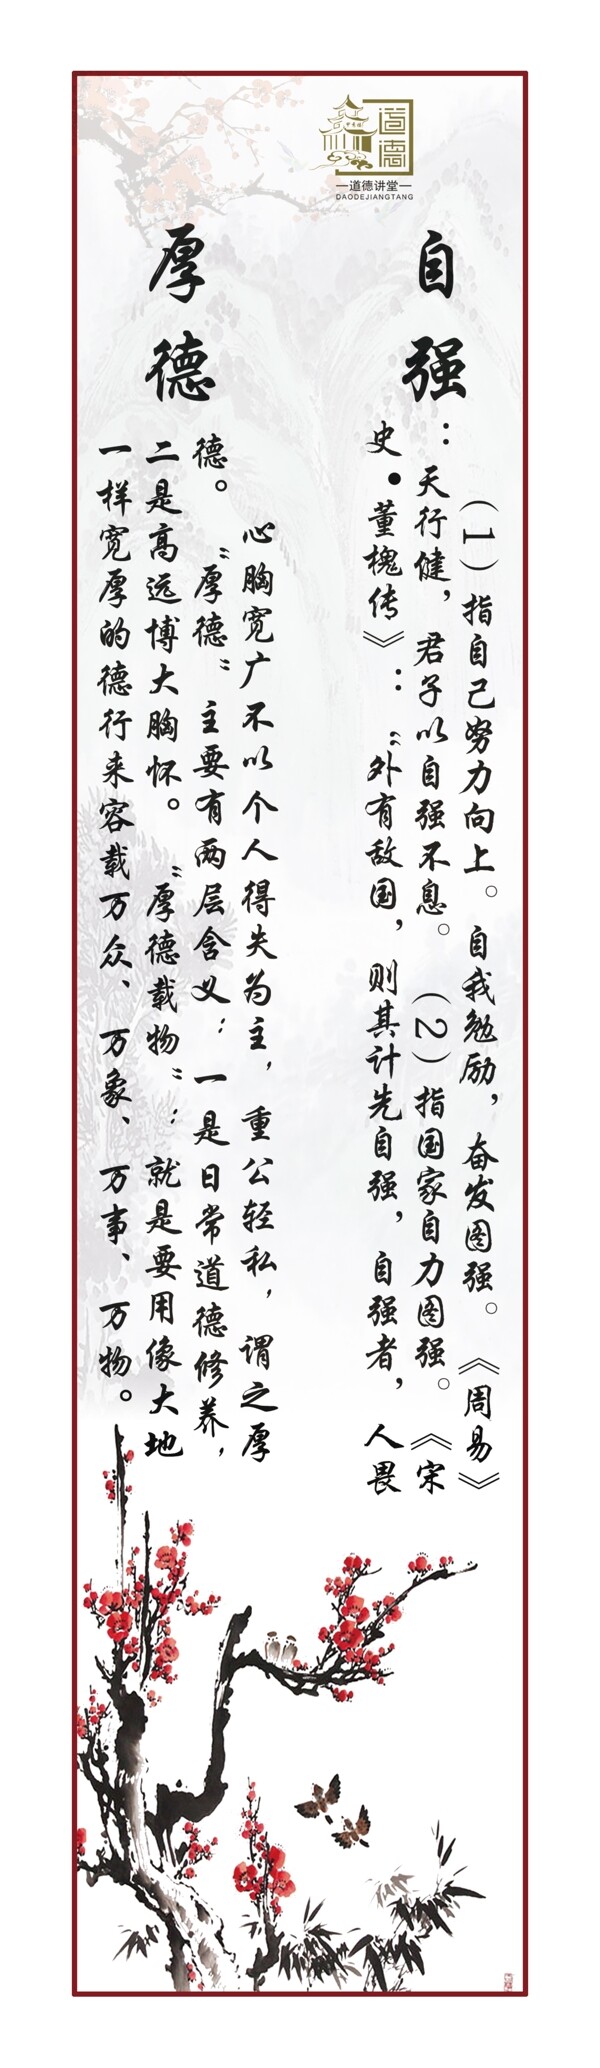 道德
道德讲堂
DAODEJIANGTANG
自强
（1）指自己努力向上。自我勉励，奋发图强。《周易》
：天行健，君子以自强不息。（2）指国家自力图强。《宋
史•董槐传》：“外有敌国，则其计先自强，自强者，人畏
厚德
心胸宽广不以个人得失为主，重公轻私，谓之厚
德。“厚德”主要有两层含义：一是日常道德修养，
二是高远博大胸怀。“厚德载物”：就是要用像大地
一样宽厚的德行来容载万众、万象、万事、万物。